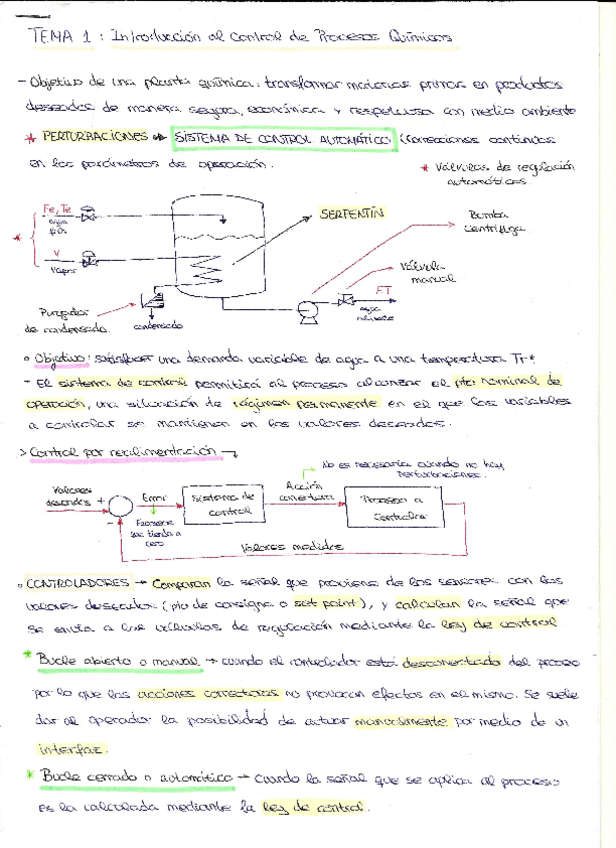 TEMA 1 : Introducción al Control de Procesos Químicos
- Objetivo de una planta química: transformar materias primas en productos
deseados de manera segura, económica y respetuosa con medio ambiente
* PERTURBACIONES → SISTEMA DE CONTROL AUTOMÁTICO (correcciones continuas
en los parámetros de operación.
* Válvulas de regulación
automáticas.
Fe, Te
agua
fría
V
Vapor
SERPENTÍN
Bomba
Centrífuga
Válvula
manual
F,T
agua
caliente
Purgador
de condensado.
condensado
o Objetivo: satisfacer una demanda variable de agua a una temperatura Tr *
- El sistema de control permitirá al proceso alcanzar el pto nominal de
operación, una situación de régimen permanente en el que las variables
a controlar se mantienen en los valores deseados.
> Control por realimentación
No es necesaria cuando no hay
perturbaciones.
Valores
deseados +
-
Error
que tienda a
cero
Sistema de
control
Acción
correctora
Proceso a
Controlar
Valores medidos
o CONTROLADORES → Comparan la señal que proviene de los sensores con los
valores deseados (pto de consigna o set point), y calculan la señal que
se envía a las válvulas de regulación mediante la ley de control
* Bucle abierto o manual → cuando el controlador está desconectado del proceso
por lo que las acciones correctoras no provocan efectos en el mismo. Se suele
dar al operador la posibilidad de actuar manualmente por medio de un
interfaz.
* Bucle cerrado o automático → Cuando la señal que se aplica al proceso
es la calculada mediante la ley de control.